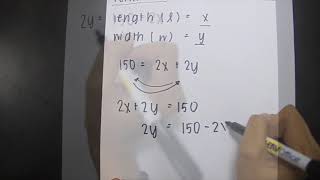 2y =
length (l) = x
width (w) = y
150 = 2x + 2y
2x + 2y = 150
2y = 150 - 2x